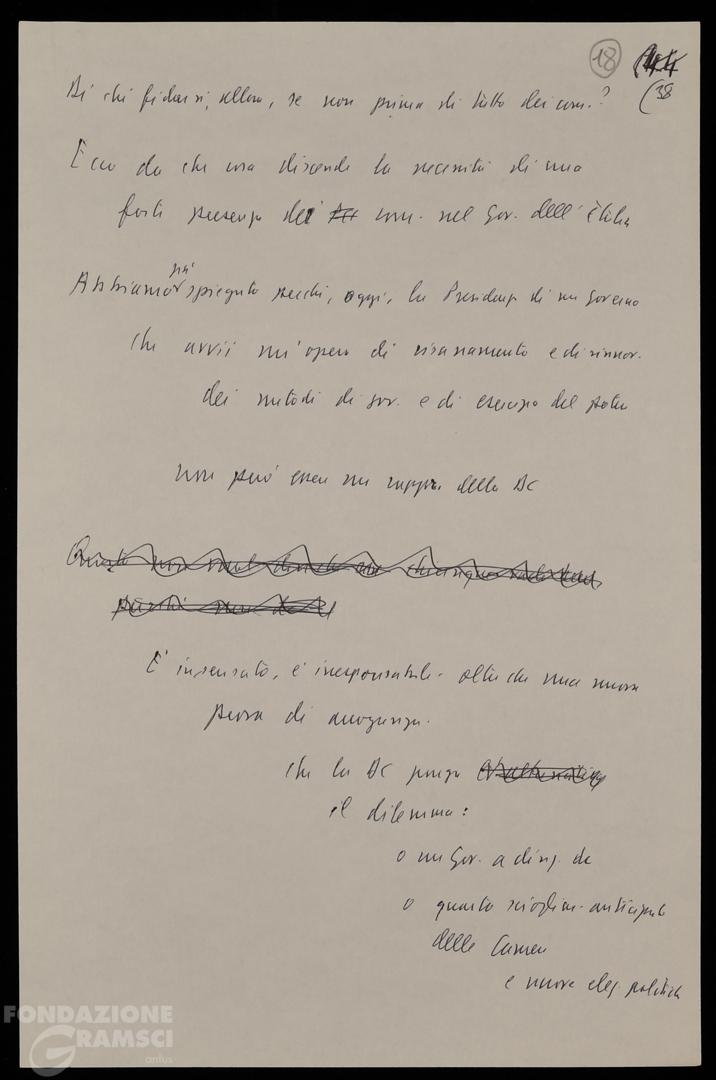 18
(38
Di chi fidarsi, allora, se non prima di tutto dei com.?
Ecco da che cosa discende la necessità di una
forte presenza dei com. nel Gov. dell'Italia
già
Abbiamo spiegato perché, oggi, la Presidenza di un Governo
che avvii un'opera di risanamento e di rinnov.
dei metodi di gov. e di esercizio del potere
non può essere un rappr. della DC
Questo non vuol dire che chiunque
perché
E' insensato, e irresponsabile - oltre che una nuova
prova di arroganza -
che la DC ponga
il dilemma:
o un Gov. a direz. dc
o quarto scioglim. anticipato
delle Camere
e nuove elez. politiche
FONDAZIONE
GRAMSCI
onlus